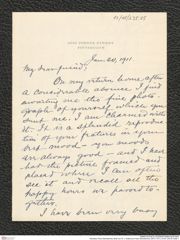 5564 FORBES STREET
PITTSBURGH
Jan. 20, 1911
My dear friend,
On my return home after
a considerable absence, I find
awaiting me the fine photo-
graph of yourself which you
sent me. I am charmed with
it. It is a splendid reproduc-
tion of your features in your
best mood - your moods
are always good - and I have
had the picture framed and
placed where I can often
see it and recall all the
happy hours we passed to-
gether.
I have been very busy